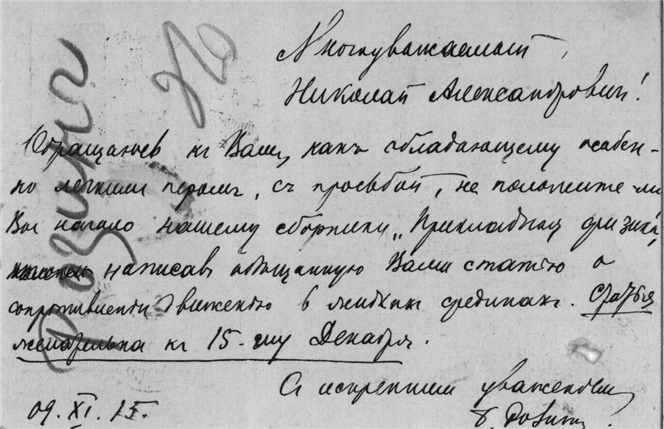 Многоуважаемый,
Николай Александрович!
Обращаюсь къ Вамъ, какъ обладающему особен-
но легкимъ перомъ, съ просьбой, не положите ли
Вы начало нашему сборнику „Прикладная физика",
написавъ обѣщанную Вами статью о
сопротивлении движению в жидких срединах. Статья
желательна къ 15-му Декабря.
С искренним уважением
09. XI. 15.
Розинг